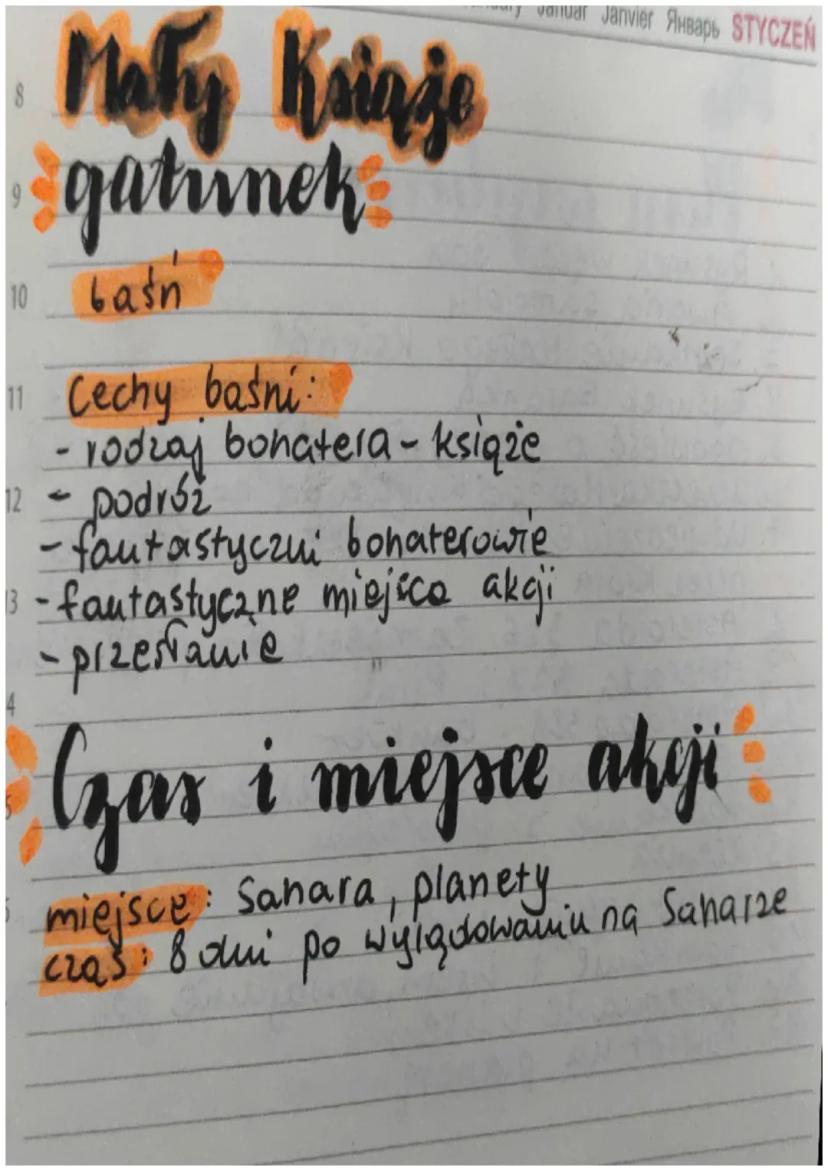 January Januar Janvier Январь STYCZEŃ
8 Mały Książe
9 gatunek
10 baśń
11 Cechy baśni:
- rodzaj bohatera - książe
12 - podróż
- fantastyczni bohaterowie
13 - fantastyczne miejsca akcji
- przesłanie
Czas i miejsce akcji
miejsce: Sahara, planety
czas: 8 dni po wylądowaniu na Saharze